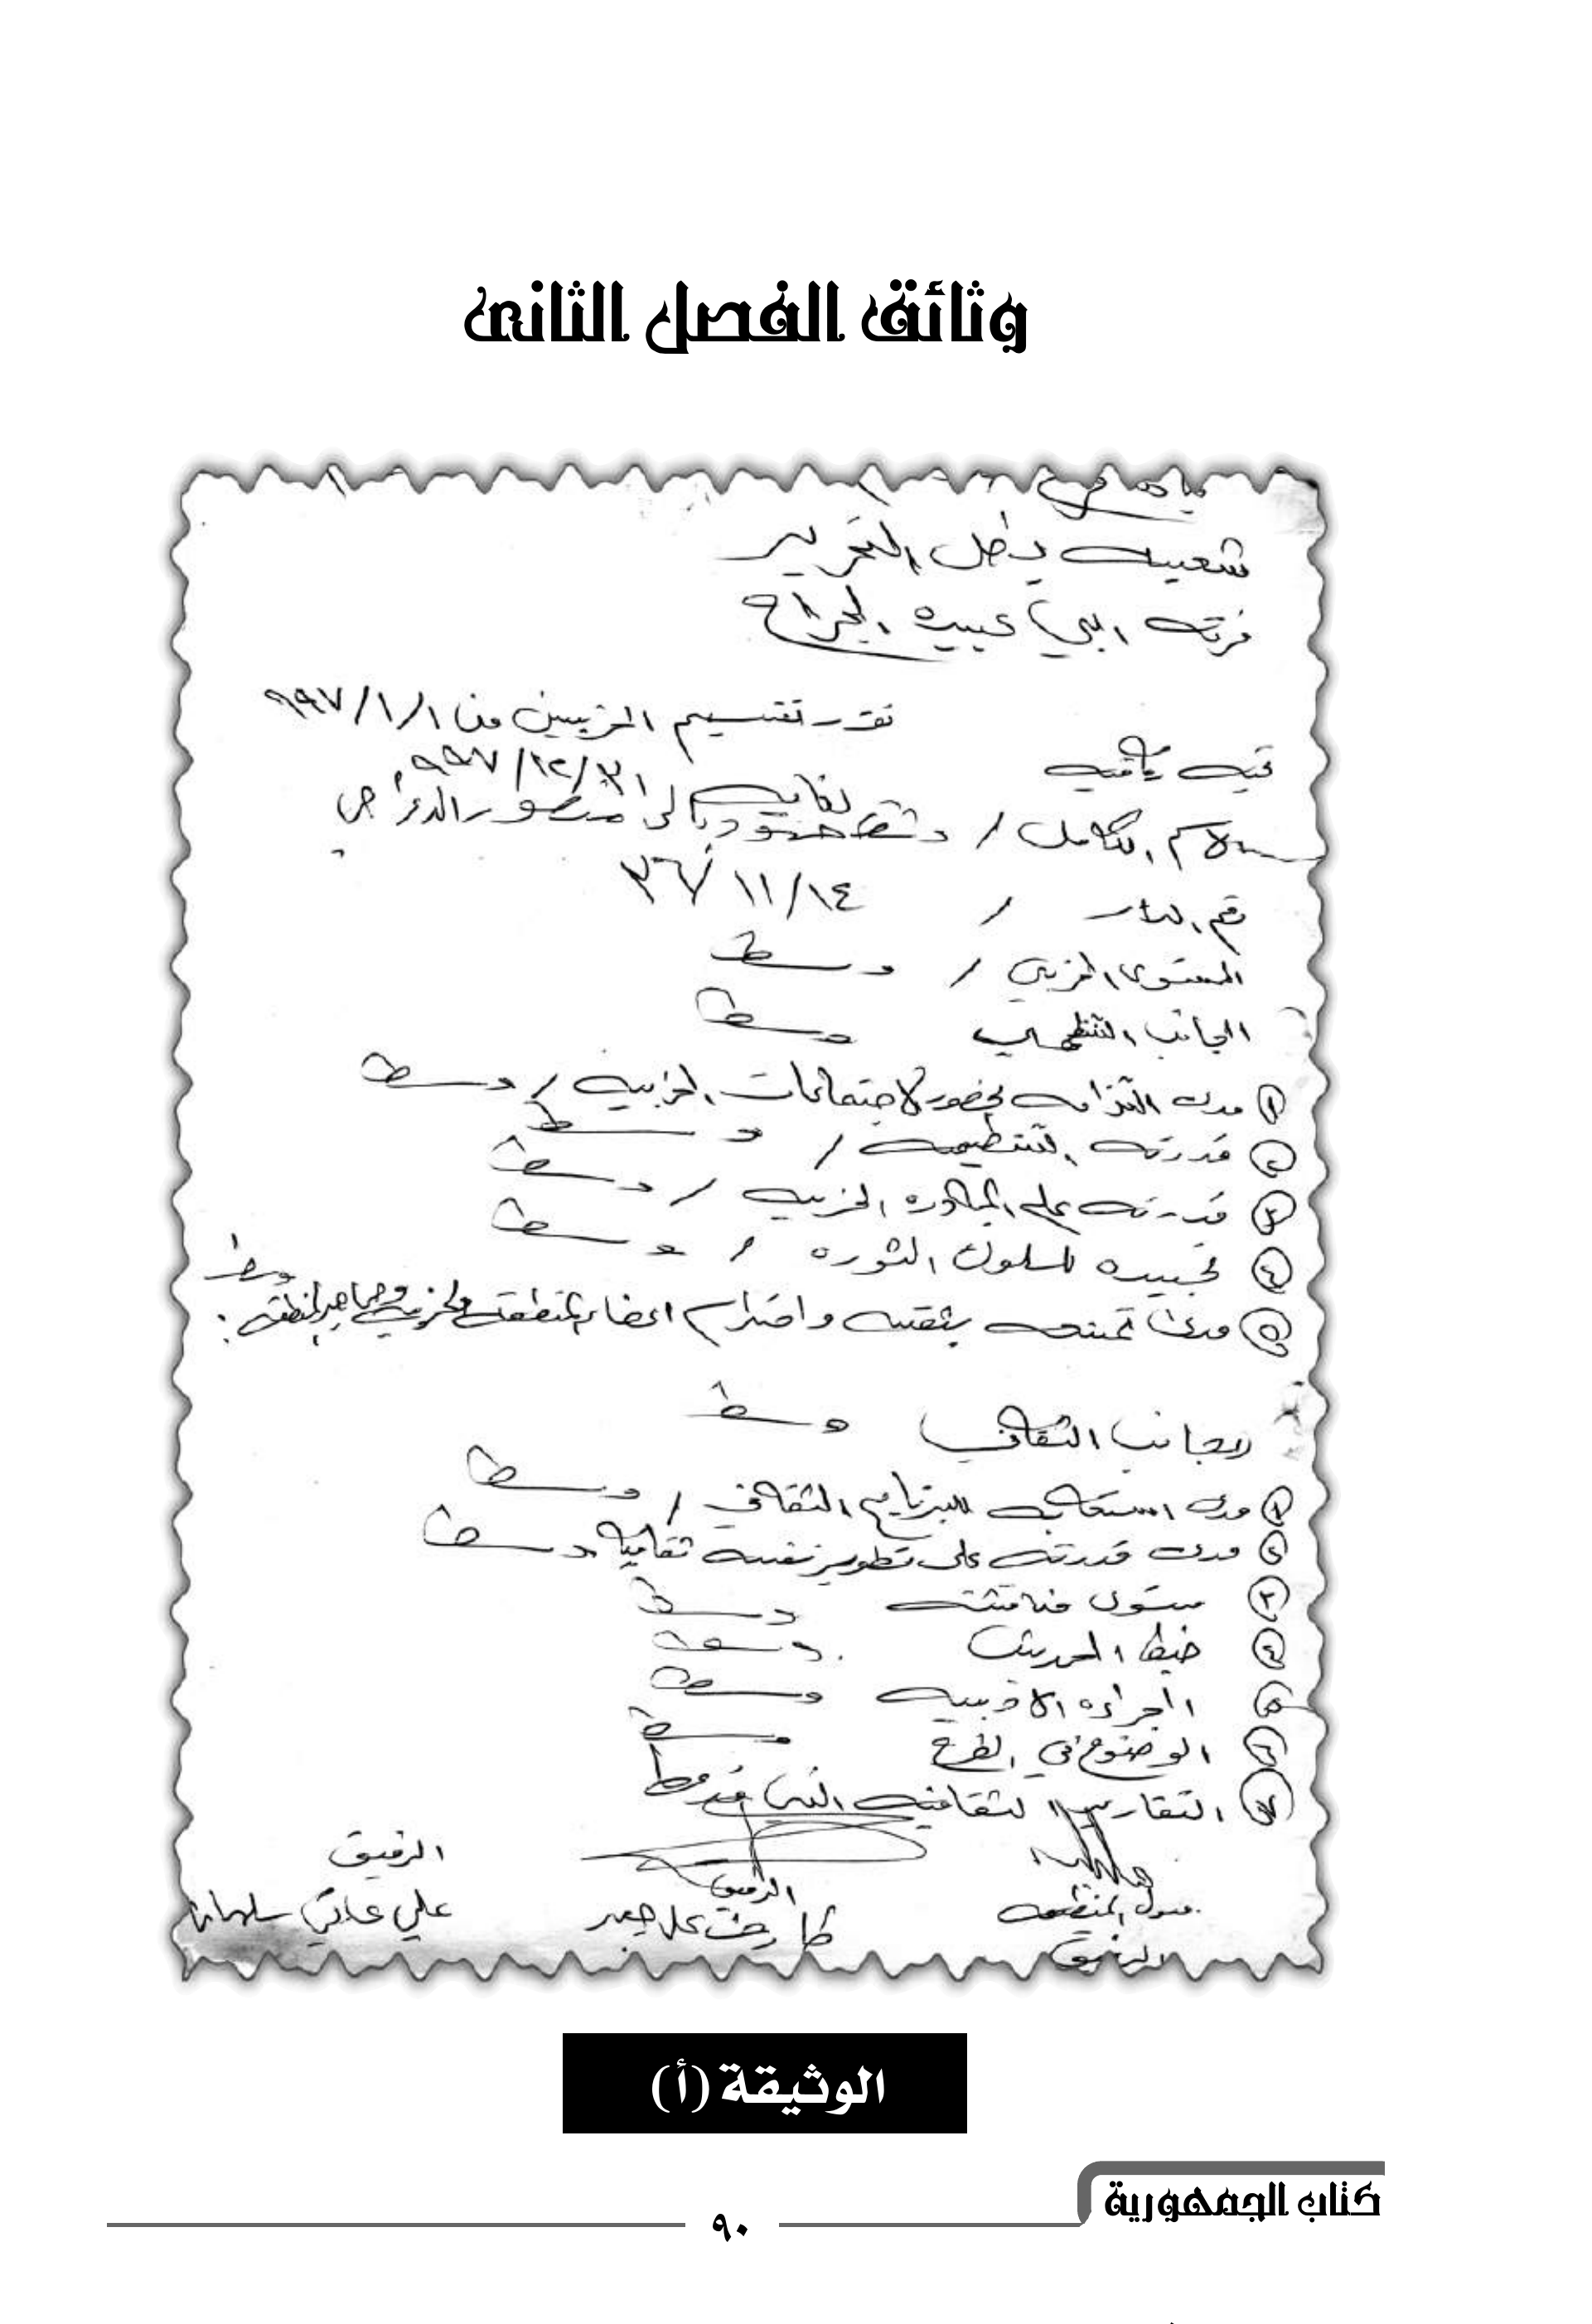 وثائق الفصل الثانى
شعبية بطل التحرير
فرقة ابي عبيده الجراح
تقييم الحزبيين من ١/١/٩٩٧
لغاية ٣١/١٢/٩٩٧
تحيه
الاسم الكامل /
رقم الدار / ١٤/١١/٣٦
المستوى الحزبي / وسط
الجانب التنظيمي وسط
١ مدى التزامه بحضور الاجتماعات الحزبيه / وسط
٢ قدرته التنظيميه / وسط
٣ قدرته على المبادره الحزبيه / وسط
٤ تجسيده للسلوك الثوره / وسط
٥ مدى تمتعه بثقه واحترام اعضاء المنظمه الحزبيه وجماهير المنطقه : وسط
الجانب الثقافي وسط
١ مدى استيعابه للبرنامج الثقافي / وسط
٢ مدى قدرته على تطوير نفسه ثقافيا وسط
٣ مستوى مناقشته وسط
٤ ضبط الحديث وسط
٥ الجرأه الادبيه وسط
٦ الوضوح في الطرح وسط
٧ التقارير الثقافيه التي
مسول المنظمه
الرفيق
الرفيق
الرفيق
علي
الوثيقة (أ)
كتاب الجمهورية
٩٠